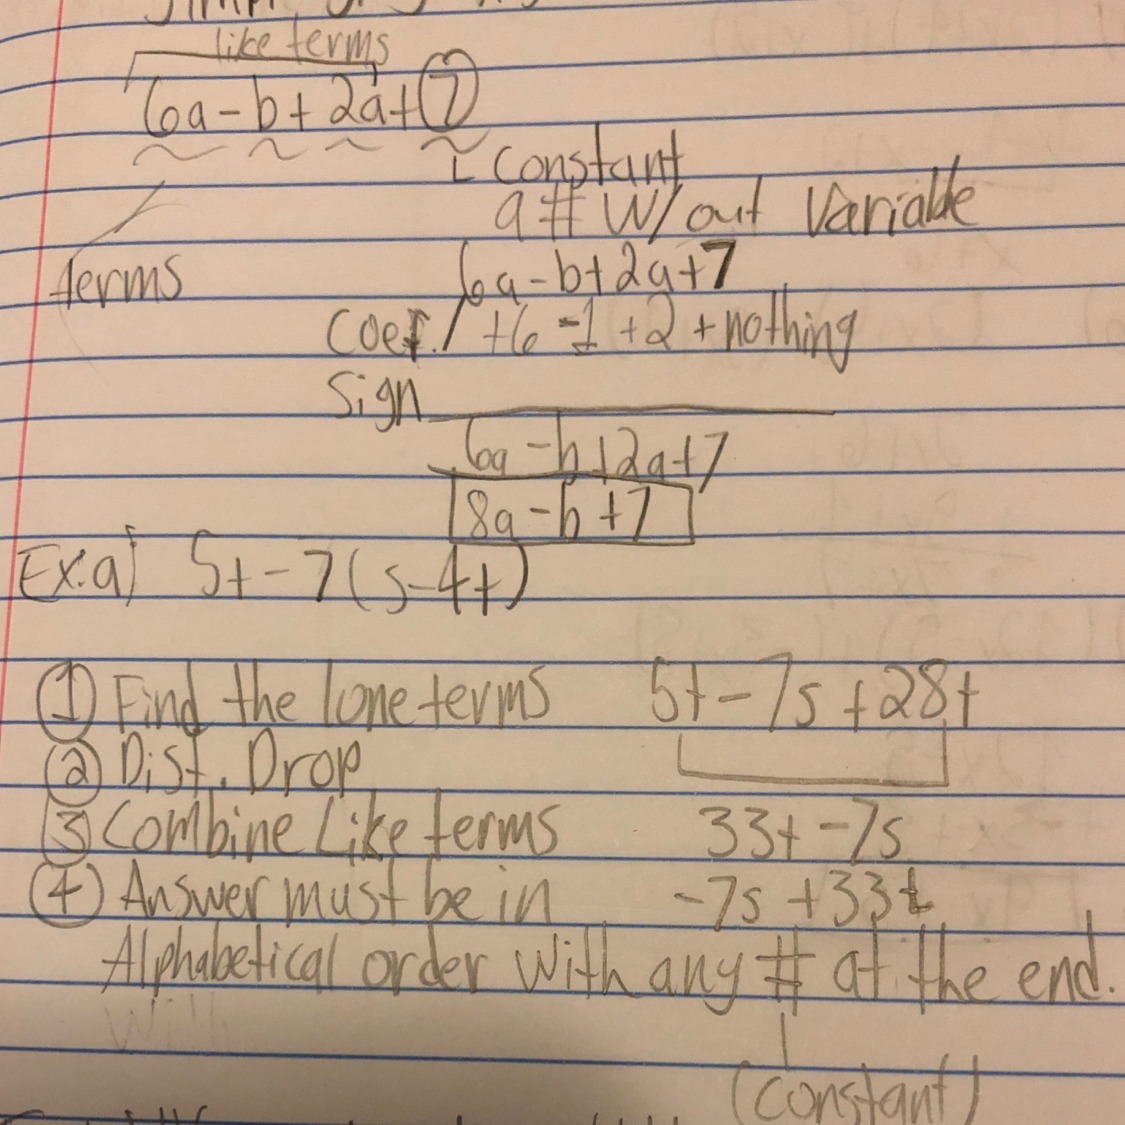 like terms
6a - b + 2a + 7
constant
a # w/out Variable
terms
6a - b + 2a + 7
Coef. / +6 -1 +2 + nothing
Sign
6a - b + 2a + 7
8a - b + 7
Ex. a) 5t - 7(s - 4t)
① Find the lone terms 5t - 7s + 28t
② Dist. Drop
③ Combine Like terms 33t - 7s
④ Answer must be in -7s + 33t
Alphabetical order with any # at the end.
(constant)